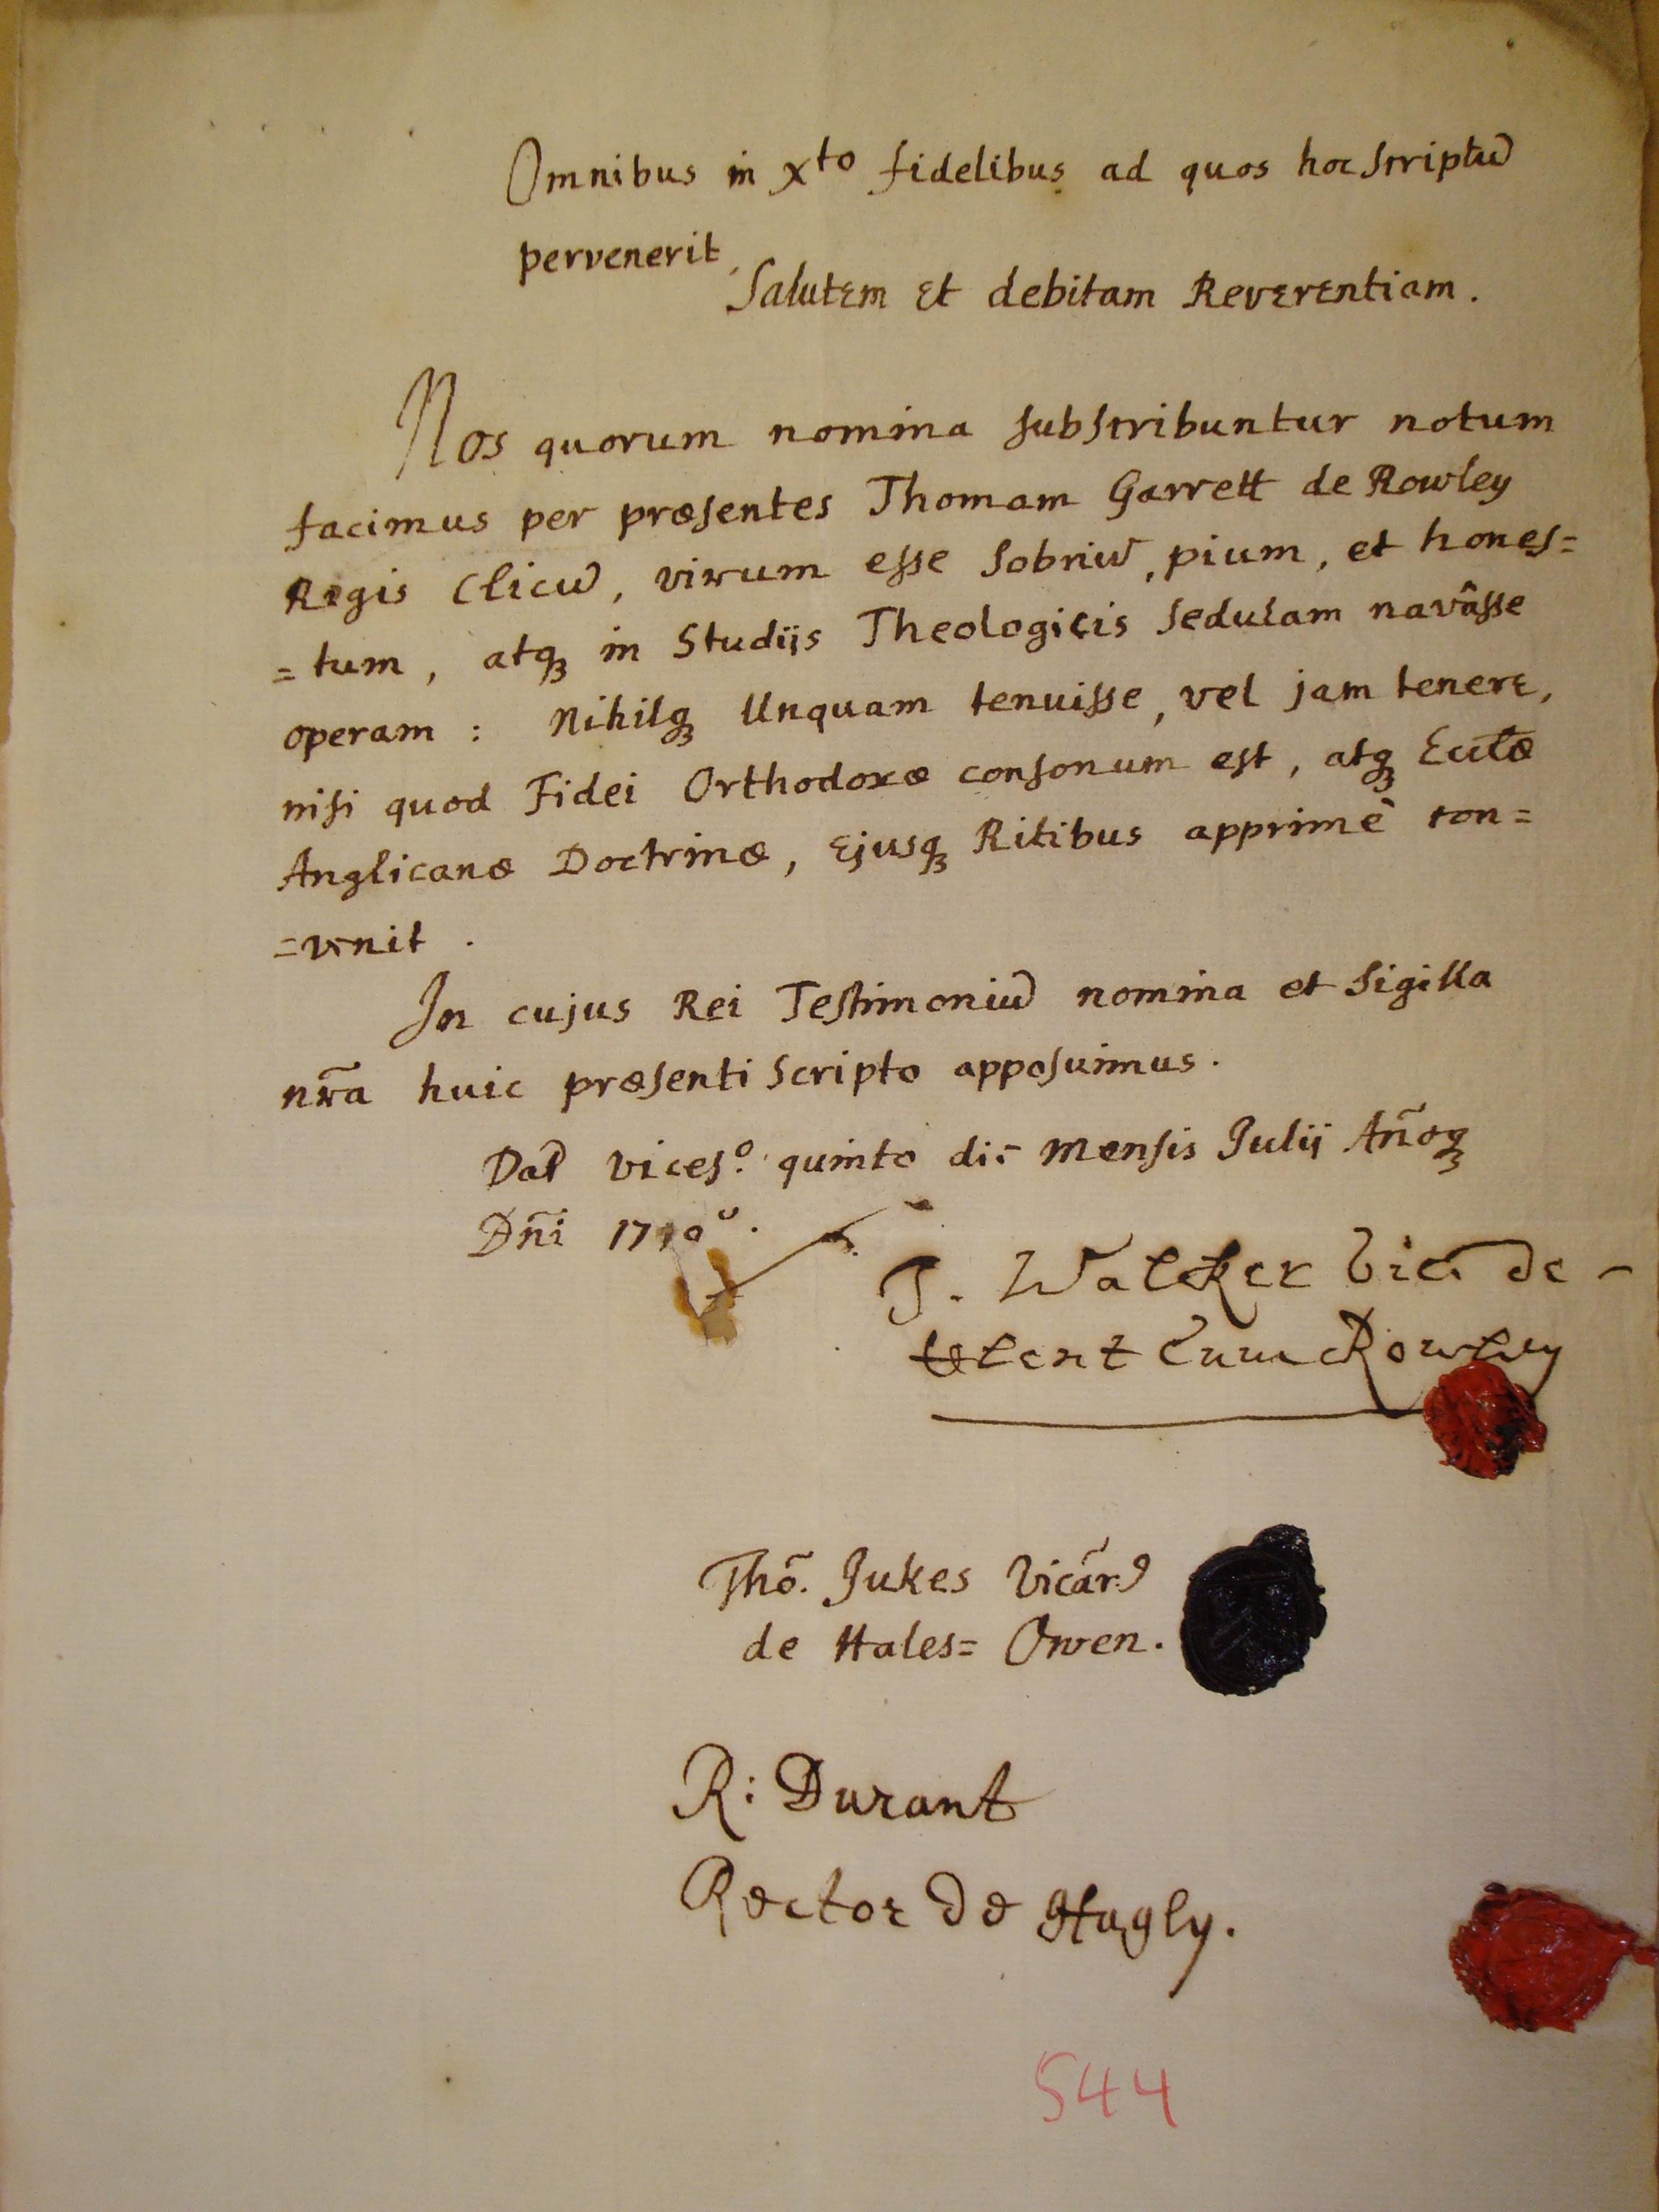 Omnibus in Xto fidelibus ad quos hoc scriptū
pervenerit,
Salutem et debitam Reverentiam.
Nos quorum nomina subscribuntur notum
facimus per præsentes Thomam Garrett de Rowley
Regis Clicū, virum esse sobriū, pium, et hones=
=tum, atqꝫ in Studijs Theologicis sedulam navâsse
operam: Nihilqꝫ Unquam tenuisse, vel jam tenere,
nisi quod Fidei Orthodoxæ consonum est, atqꝫ Eccl̄æ
Anglicanæ Doctrinæ, Ejusqꝫ Ritibus apprimè con=
=venit.
In cujus Rei Testimoniū nomina et Sigilla
nr̄a huic præsenti Scripto apposuimus.
Dat vices.º quinto die Mensis Julij Añoqꝫ
Dñi 1710º.
J. Walcker Vic. de
Clent Cum Rowley
Thõ. Jukes Vicār
de Hales=Owen.
R: Durant
Rector de Hagly.
544